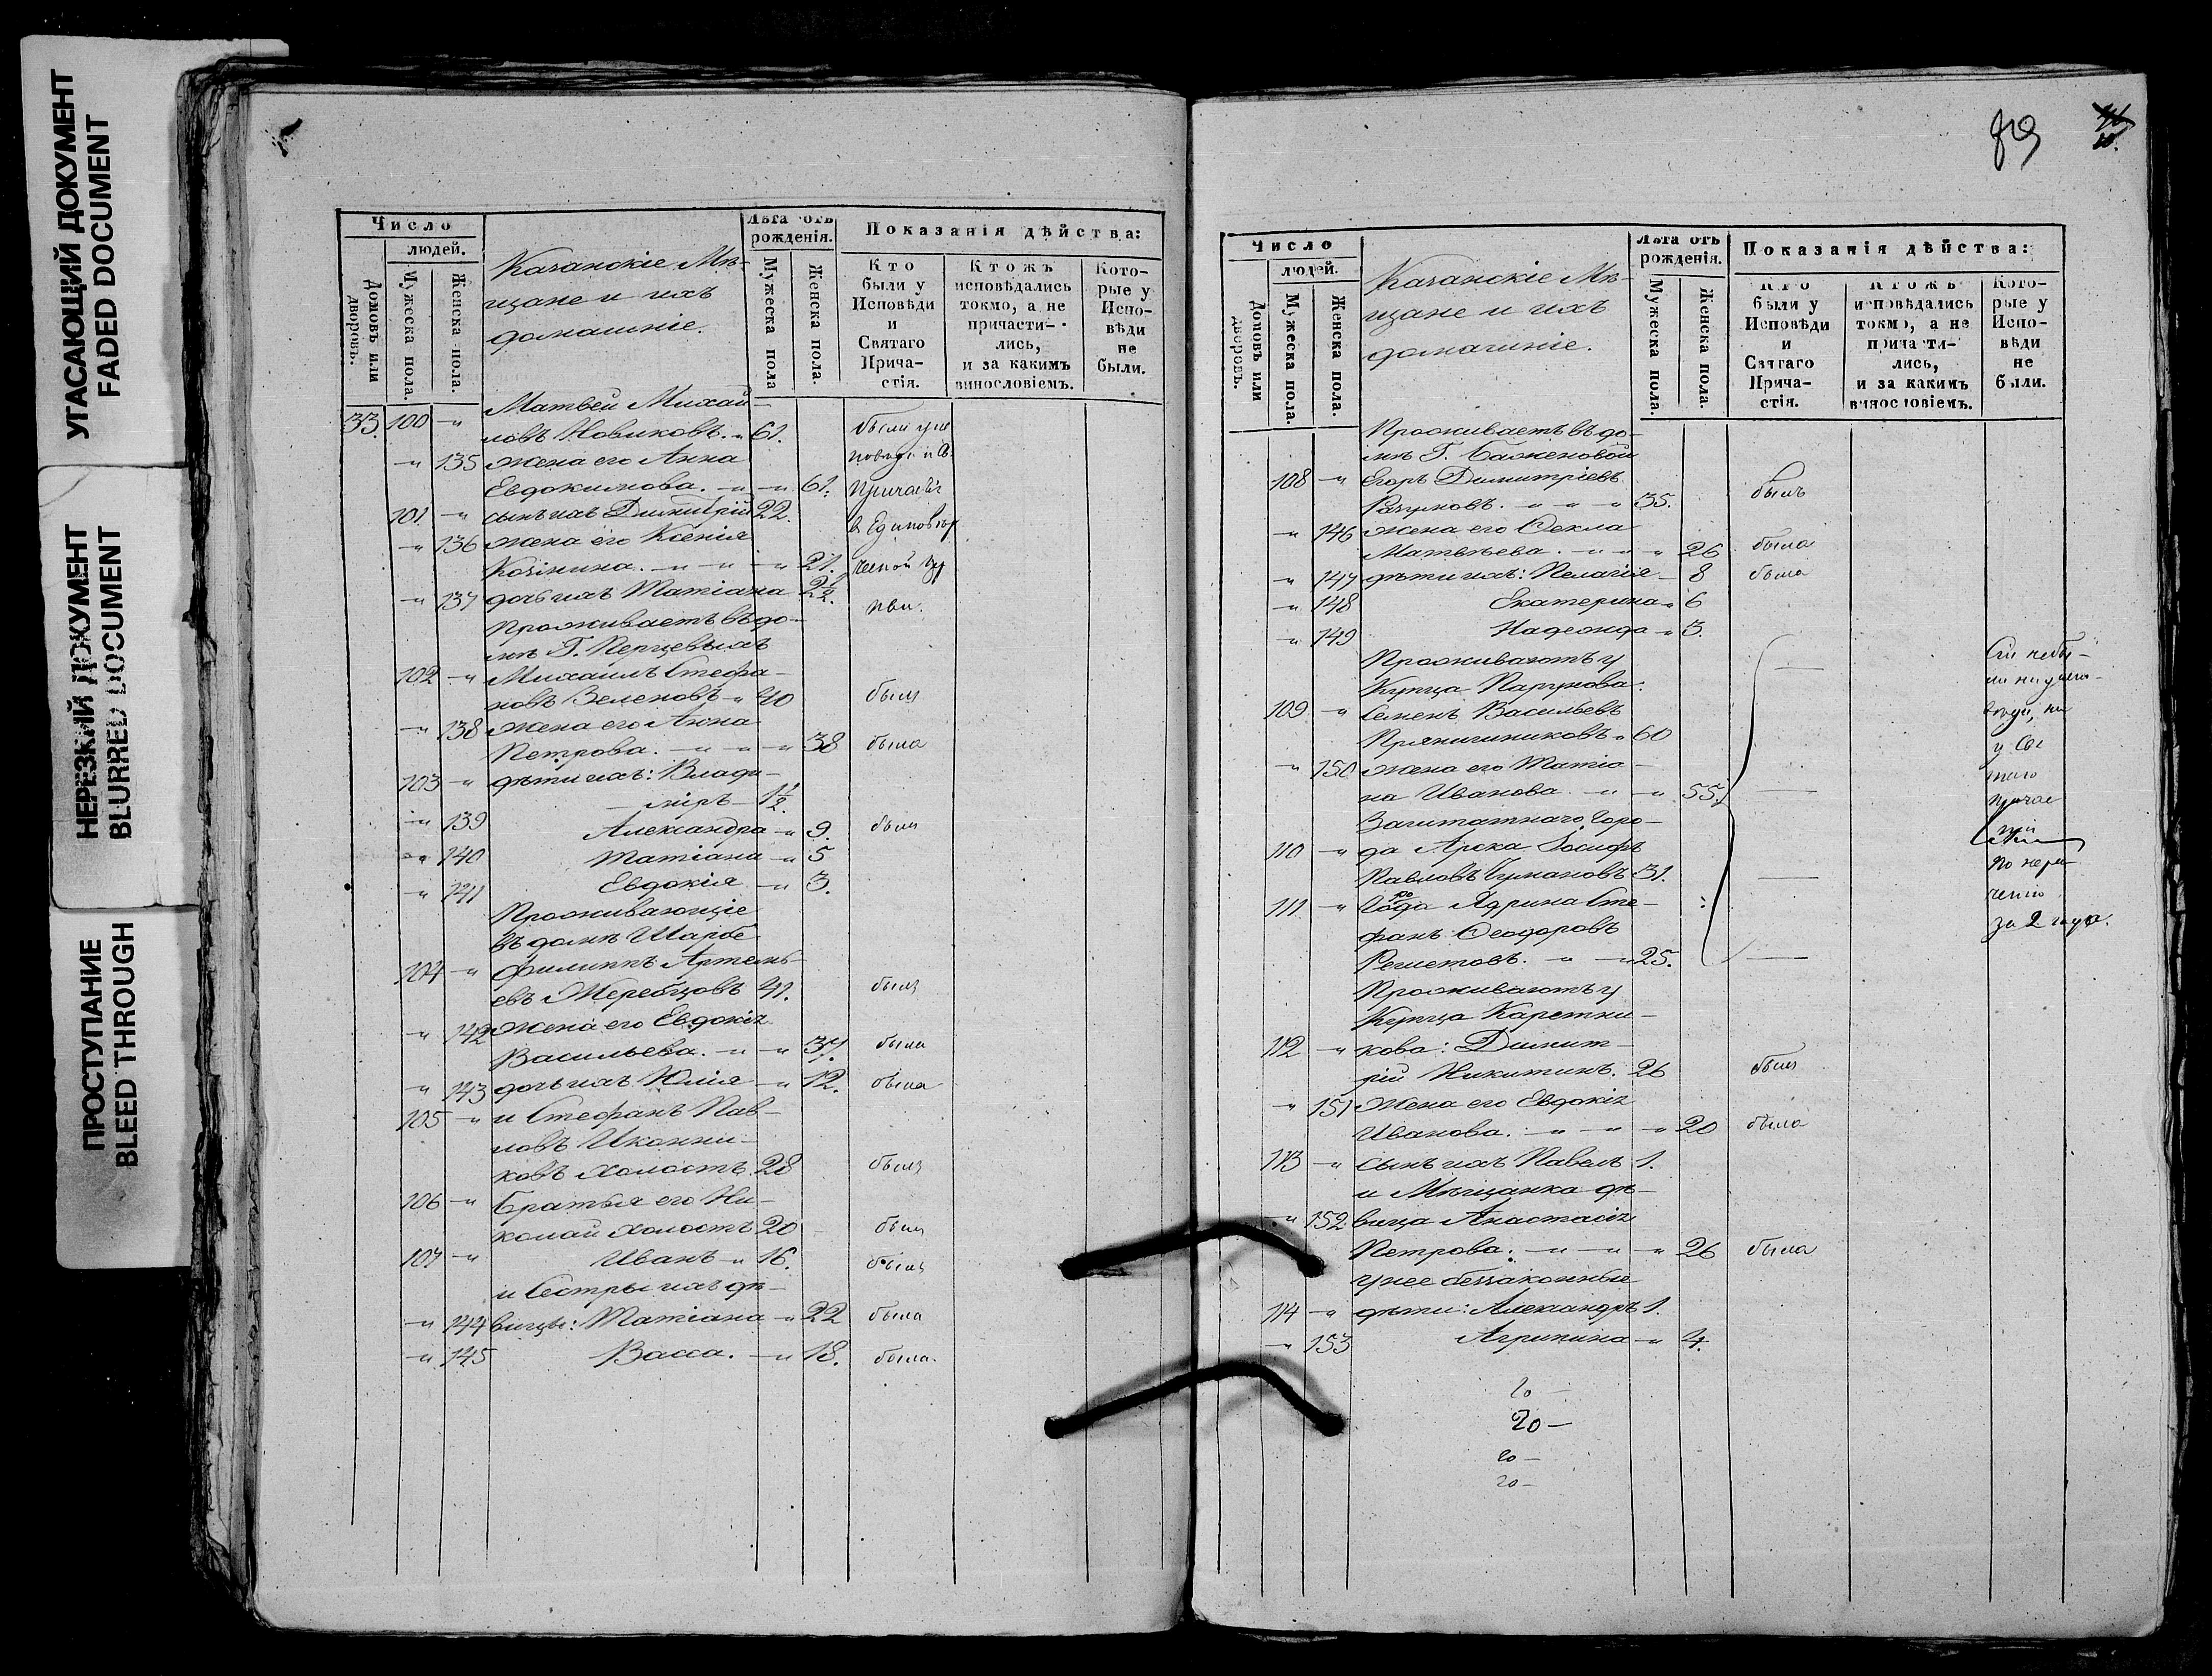 УГАСАЮЩИЙ ДОКУМЕНТ
FADED DOCUMENT
НЕРЕЗКИЙ ДОКУМЕНТ
BLURRED DOCUMENT
ПРОСТУПАНИЕ
BLEED THROUGH
Число
людей.
Домовъ или дворовъ.
Мужеска пола.
Женска пола.
Казанскіе Мѣ-
щане и ихъ
домашніе.
Лѣта отъ
рожденія.
Мужеска пола
Женска пола.
Показанія дѣйства:
Кто
были у
Исповѣди
и
Святаго
Прича-
стія.
Ктожъ
исповѣдались
токмо, а не
причасти-
лись,
и за какимъ
винословіемъ.
Кото-
рые у
Испо-
вѣди
не
были.
33. 100 -"- Матвей Михай-
ловъ Новиковъ. -" 61. были у ис
-" 135 жена его Анна
Евдокимова. -"- -" 61. причастія
101 -" сынъ ихъ Димитрій 22.
-" 136 жена его Ксенія
-"- -"- -" 21.
-" 137 дочь ихъ Татіана 2½.
Проживаетъ въ до-
мѣ Г. Перцевыхъ
102 -" Михаилъ Стефа-
новъ Зеленовъ -" 40 былъ
-" 138 жена его Анна
Петрова. -"- -"- -" 38 была
103 -" дѣти ихъ: Влади-
міръ - 1½.
-" 139 Александра -" 9. была
-" 140 Татіана -" 5
-" 141 Евдокія -" 3.
Проживающіе
въ домѣ Шарбе
104 -" Филиппъ Артемь-
евъ Жеребцовъ 41. былъ
-" 142 жена его Евдокія
Васильева. -"- -" 37. была
-" 143 дочь ихъ Юлія -" 12. была
105 -" и Стефанъ Пав-
ловъ Иконни-
ковъ холостъ 28 былъ
106 -" братья его Ни-
колай холостъ 20 былъ
107 -" Иванъ -" 16. былъ
и Сестры ихъ дѣ-
-" 144 вицы: Татіана -" 22 была
-" 145 Васса. -" 18. была.
89
Число
людей.
Домовъ или дворовъ.
Мужеска пола.
Женска пола.
Казанскіе Мѣ-
щане и ихъ
домашніе.
Лѣта отъ
рожденія.
Мужеска пола.
Женска пола.
Показанія дѣйства:
Кто
были у
Исповѣди
и
Святаго
Прича-
стія.
Ктожъ
исповѣдались
токмо, а не
причасти-
лись,
и за какимъ
винословіемъ.
Кото-
рые у
Испо-
вѣди
не
были.
Проживаетъ въ до-
мѣ Г. Баженовой
108 -" Егоръ Димитріевъ
-"- -"- -" 35. былъ
-" 146 жена его Ѳекла
Матвѣева. -"- -"- -" 26 была
-" 147 дѣти ихъ: Пелагія - 8 была
-" 148 Екатерина -" 6
-" 149 Надежда -" 3.
Проживаютъ у
Купца Парунова.
109 -" Семенъ Васильевъ
Пряничниковъ -" 60
-" 150 жена его Татіа-
на Иванова. -"- -" 55.
Заштатнаго Горо-
110 -" да Арска Іосифъ
Павловъ Чумановъ 31.
111 -" Города Ядрина Сте-
фанъ Ѳеодоровъ
Решетовъ. -"- -" 25.
по нера-
денію
за 2 года.
Проживаютъ у
Купца Каретни-
112 -" кова: Димит-
рій Никитинъ. 26 былъ
-" 151 жена его Евдокія
Иванова. -"- -"- -" 20 была
113 -" сынъ ихъ Павелъ 1.
и Мѣщанка дѣ-
-" 152 вица Анастасія
Петрова: -"- -"- -" 26 была
у нее беззаконные
114 -" дѣти: Александръ 1.
-" 153 Агрипина -" 4.
20 -
20 -
20 -
20 -